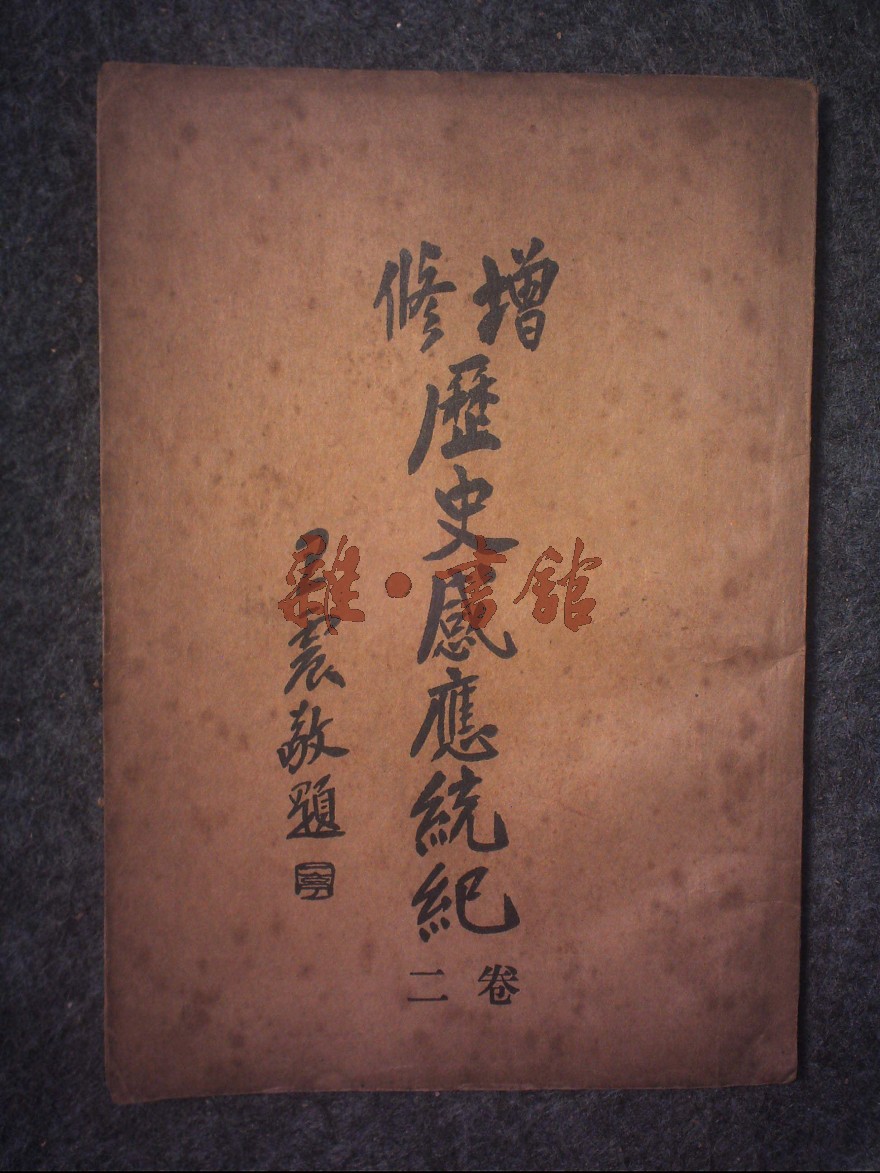 增修
歷史感應統紀
卷二
敬題
雜·書館